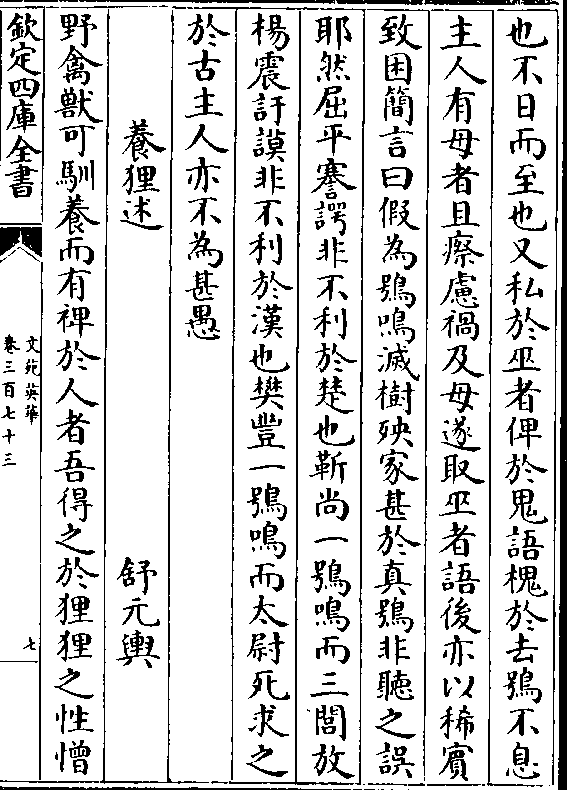 也不日而至也又私於巫者俾於鬼語槐於去鴞不息
主人有母者且瘵慮禍及母遂取巫者語後亦以稀賔
致困簡言曰假為鴞鳴滅樹殃家甚於真鴞非聽之誤
耶然屈平謇諤非不利於楚也靳尚一鴞鳴而三閭放
楊震訏謨非不利於漢也樊豐一鴞鳴而太尉死求之
於古主人亦不為甚愚
養狸述
舒元輿
野禽獸可馴養而有裨於人者吾得之於狸狸之性憎
欽定四庫全書
文苑英華
卷三百七十三
七